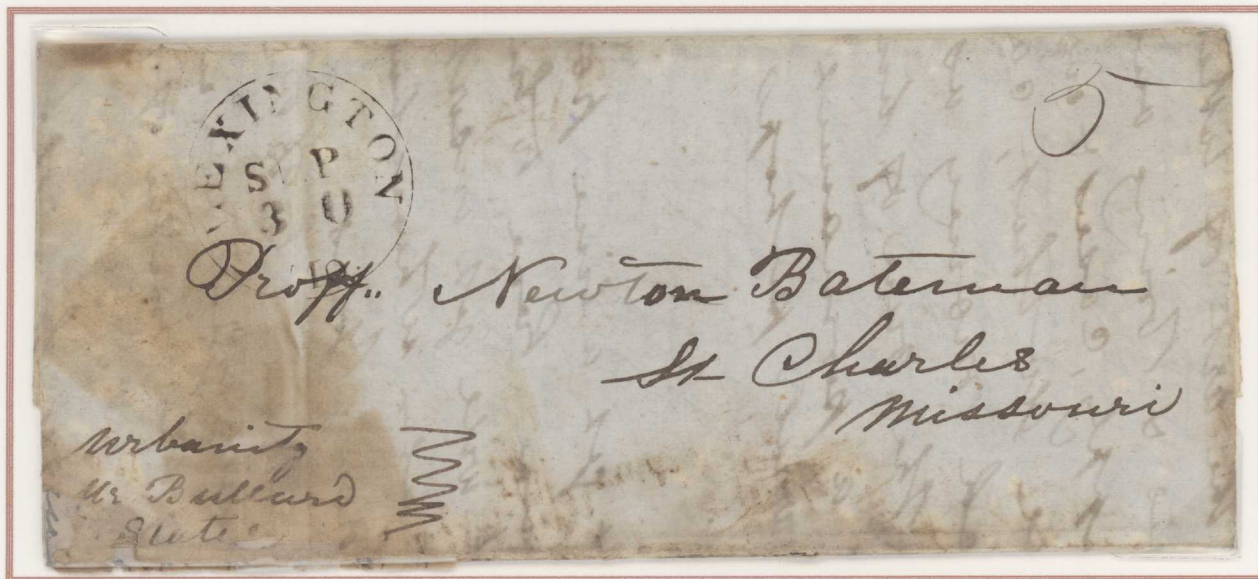 LEXINGTON
SEP
30
5
Proff. Newton Bateman
St Charles
Missouri
Urbanity
Mr Bullard